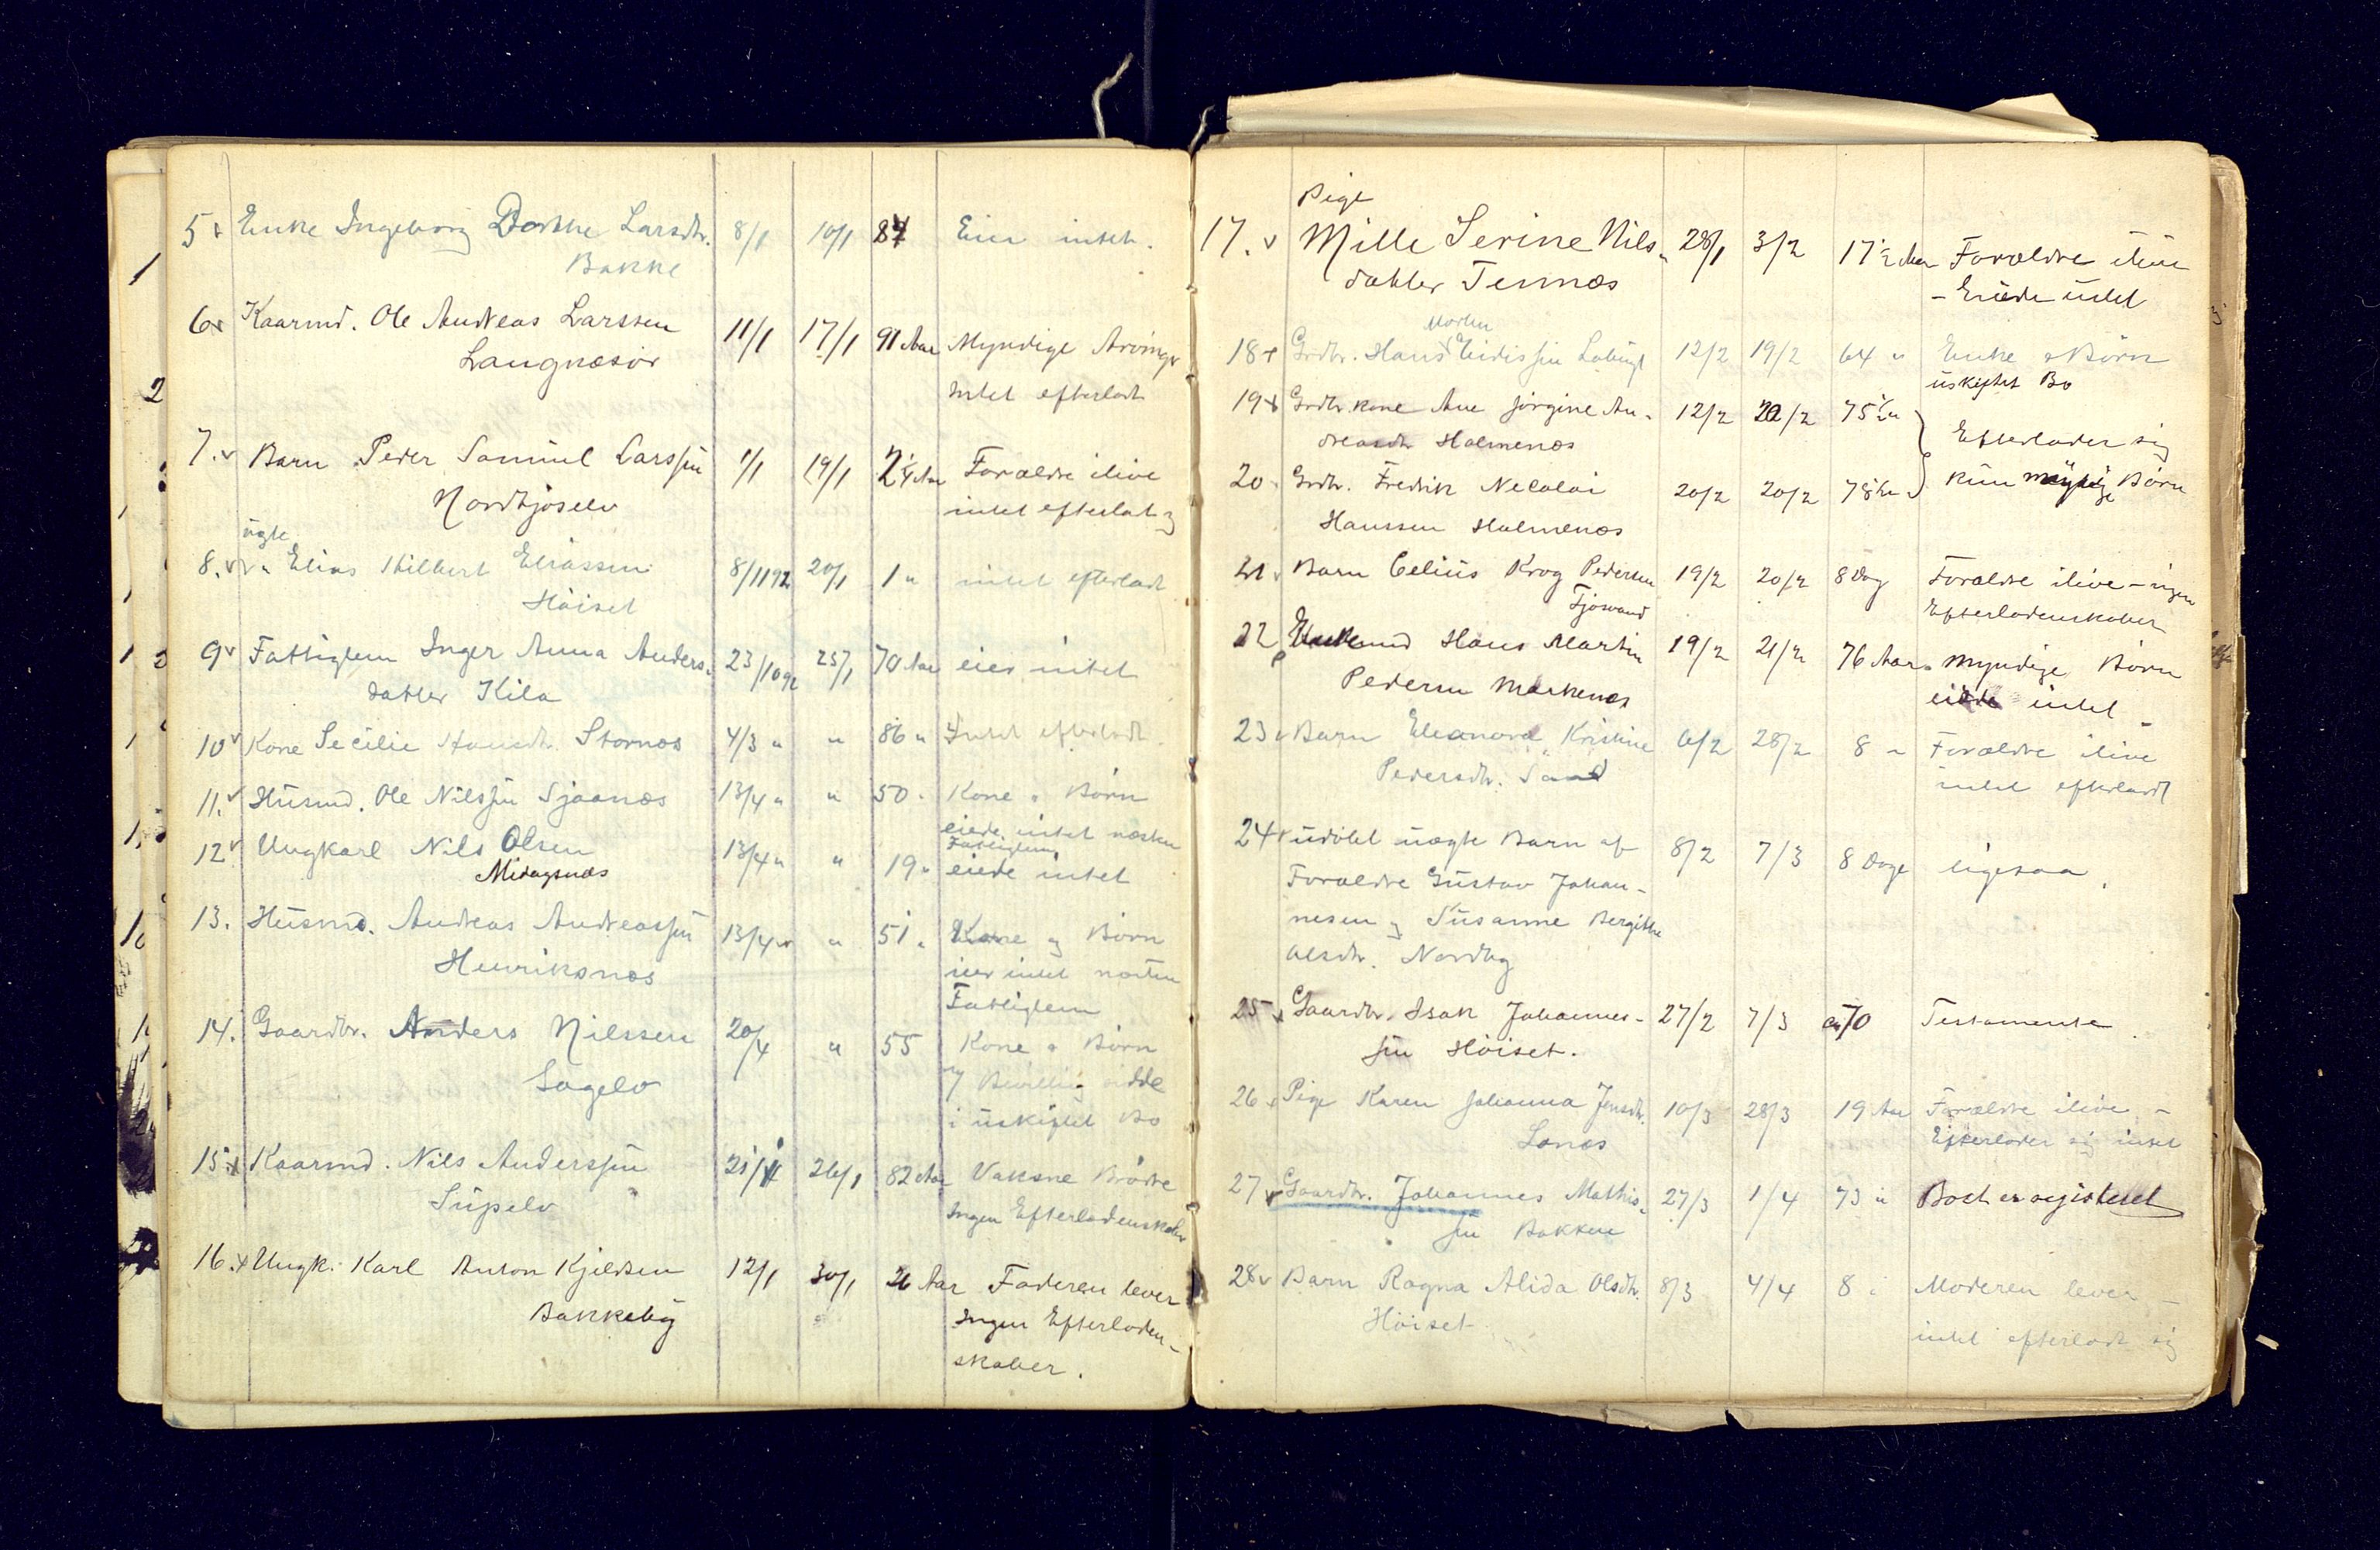 5 Enke Ingeborg Dorthe Larsdtr. 8/1 10/1 84 Eier intet.
Bakke
6 Kaarmd. Ole Andreas Larssen 11/1 17/1 91 Aar Myndige Arvinger
Langnæsör
intet efterladt
7. Barn Peder Samuel Larssen 1/1 19/1 2 1/4 Aar Forældre ilive
Nordkjoselv intet efterlat
uægte
8. " Elias Hilbert Eliassen 8/11 92 20/1 1 " intet efterladt
Höiset
9 Fattiglem Inger Anna Anders- 23/10 92 25/1 70 Aar eier intet
datter Kila
10 Kone Secilie Hansdtr. Stornæs 4/3 " " 86 " Intet efterladt
11. Husmd. Ole Nilssen Sjaanæs 13/4 " " 50 " Kone & Börn
eiede intet næsten
Fattiglem
12 Ungkarl Nils Olsen 13/4 " " 19 " eiede intet
Midagsnæs
13. Husmd. Andreas Andreassen 13/4 " " 51 " Kone og Börn
Henriksnæs eier intet næsten
Fattiglem
14. Gaardbr. Anders Nilssen 20/4 " 55 Kone & Börn
Sagelv Bevillig sidde
i uskiftet Bo
15. Kaarmd. Nils Anderssen 21/1 26/1 82 Aar Vaksne Brödre
Ingen Efterladenskaber
16. Ungk. Karl Anton Kjeldsen 12/1 30/1 26 Aar Faderen lever
Bakkeby Ingen Efterladen-
skaber.
Pige
17. Mille Serine Nils- 28/1 3/2 17 1/2 Aar Forældre ilive
datter Tennæs - Eiede intet
Morten
18 Grdbr. Hans 12/2 19/2 64 " Enke & Börn
uskiftet Bo
19 Grdbr. kone Ane Jörgine An- 12/2 20/2 75
dreasdtr Holmenæs Efterlader sig
20 Grdbr. Fredrik Nicolai 20/2 20/2 78 kun myndige Börn
Hanssen Holmenæs
21 Barn Celius Krog Pedersen 19/2 20/2 8 Dag Forældre ilive - ingen
Fjosvand Efterladenskaber
22 Enkemd Hans Martin 19/2 21/2 76 Aar Myndige Börn
Pedersen Markenæs eiede intet -
23 Barn Eleanora Kristine 6/2 28/2 8 " Forældre ilive
Pedersdtr. Sand intet efterladt
24 udöbt uægte Barn af 8/2 7/3 8 Dage ligesaa.
Forældre Gustav Johan-
nesen og Susanne Bergitte
Olsdtr. Nordby
25 Gaardbr. Isak Johannes- 27/2 7/3 ca 70 Testamente
sen Höiset.
26 Pige Karen Johanna Jensdtr. 10/3 28/3 19 Aar Forældre ilive -
Lanes Efterlader sig intet
27 Gaardbr. Johannes Mathis- 27/3 1/4 73 " Boet er registeret
sen Bakken
28 Barn Ragna Alida Olsdtr. 8/3 4/4 8 " Moderen lever -
Höiset intet efterladt sig